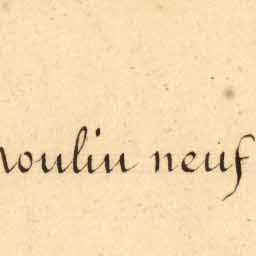 moulin neuf